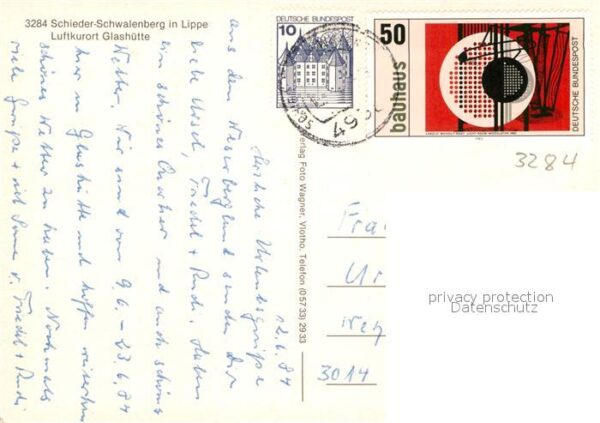 3284 Schieder-Schwalenberg in Lippe
Luftkurort Glashütte
10
DEUTSCHE BUNDESPOST
50
bauhaus
DEUTSCHE BUNDESPOST
3284
Verlag Foto Wagner, Vlotho, Telefon (0 57 33) 29 33
12.6.84
Herzliche Urlaubsgrüße
aus dem Weserbergland senden Dir
liebe Friedel + Rudi. Haben
ein schönes Quartier und auch schönes
Wetter. Wir sind vom 9.6. – 23.6.84
hier in Glashütte und hoffen weiterhin
schönes Wetter zu haben. Nochmals
viele Grüße + v. Friedel + Rudi
Fra
Ur
3014
privacy protection
Datenschutz